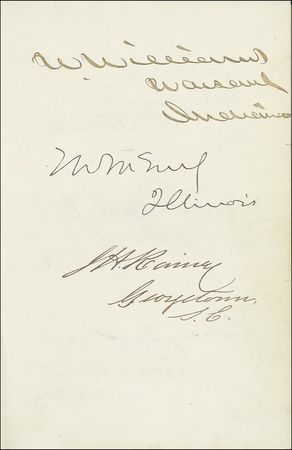 W. Williams
Warsaw
Indiana
Illinois
J H Rainey
Georgetown,
S. C.